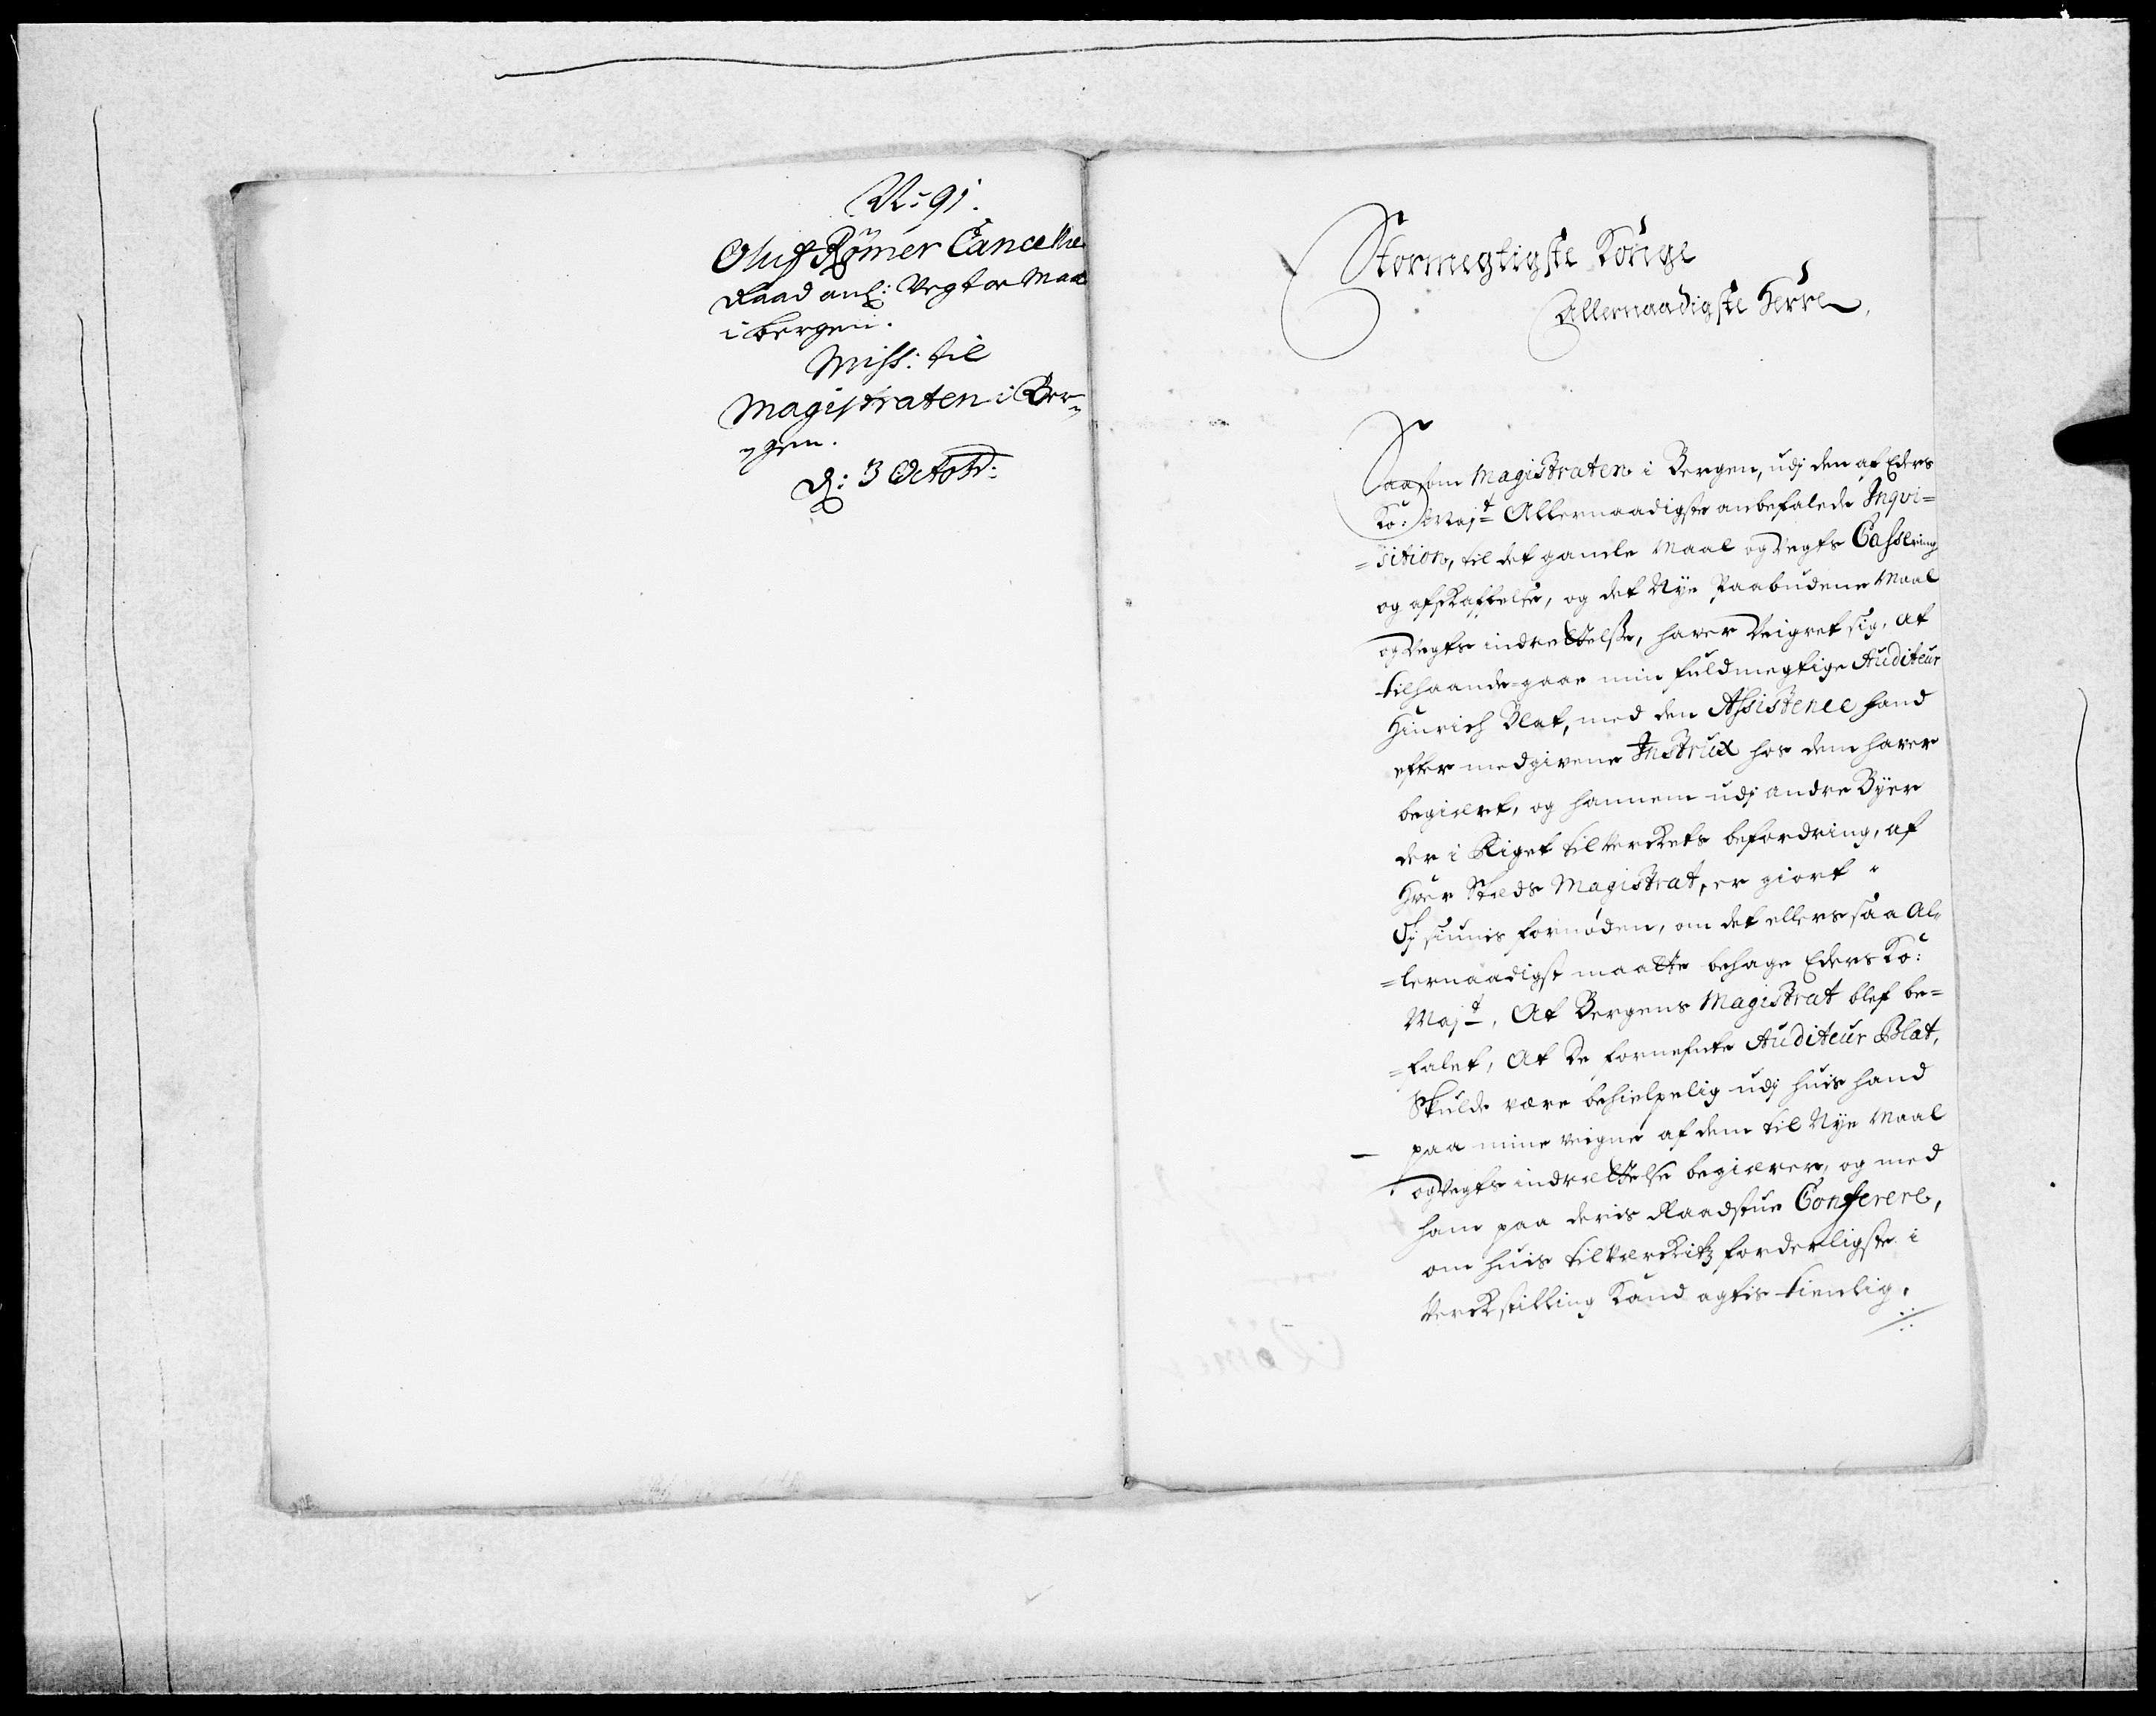 N: 91.
Oluf Rømer Cancellie
Raad anl: Vegt oc Maal
i bergen.
Miss: til
Magistraten i Ber„
„gen.
D: 3 Octobr:
Stormegtigste Konge
Allernaadigste Herre,
Saasom Magistraten i Bergen, udj den af Eders
Ko: Majt Allernaadigste anbefalede Inqvi=
=sition, til det gamle Maal og Vegts Cassering
og afskaffelse, og det Nye Paabudene Maal
og Vegts indrettelsse, hafver Veigret sig, at
tilhaande=gaae min fuldmegtige Auditeur
Hinrich Blat, med den Assistence hand
efter medgivene Instrux hos dem hafver
begiært, og hannem udj andre Byer
der i Riget til Verckets befordring, af
Hver Stæds Magistrat, er giort.
Sÿ siunis fornøden, om det ellers saa Al„
=lernaadigst maatte behage Eders Ko:
Majt, At Bergens Magistrat blef be=
=falet, At de fornefnte Auditeur Blat,
Skulde være behielpelig udj huis hand
paa mine veigne af dem til Nye Maal
og Vegts indrættelse begiærer, og med
ham paa deris Raadstue Conferere,
om huis til Værckitz forderligste i
Verckstilling Kand agtis tienlig.